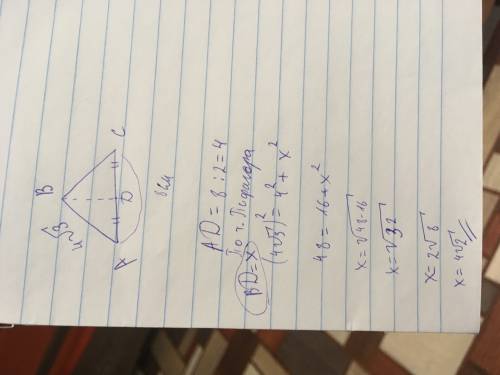 B
4√3
A
D
C
8см
AD = 8 : 2 = 4
По т. Пифагора
BD = x
(4√3)² = 4² + x²
48 = 16 + x²
x = √48-16
x = √32
x = 2√8
x = 4√2